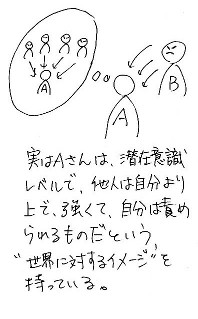 A
A
B
実はAさんは、潜在意識
レベルで、他人は自分より
上で、強くて、自分は責め
られるものだという、
"世界に対するイメージ"を
持っている。